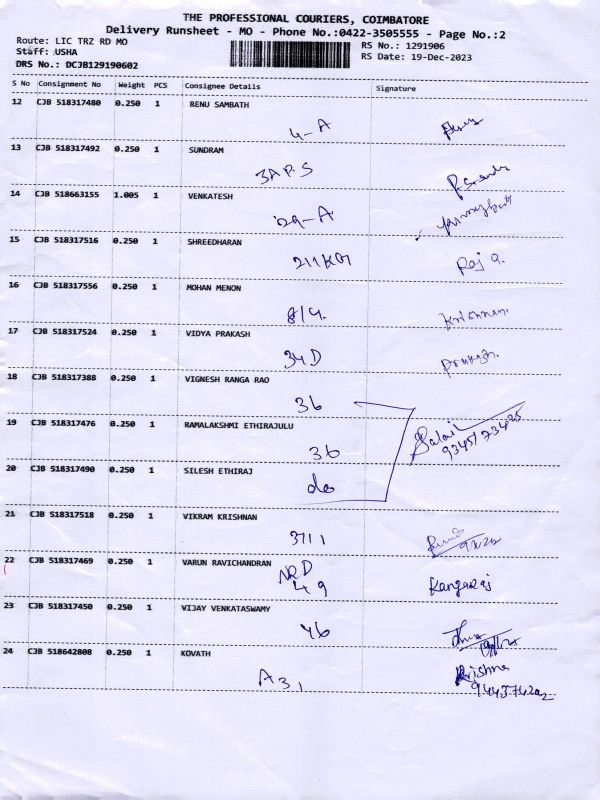 THE PROFESSIONAL COURIERS, COIMBATORE
Delivery Runsheet - MO - Phone No.:0422-3505555 - Page No.:2
Route: LIC TRZ RD MO
Staff: USHA
DRS No.: DCJB129190602
RS No.: 1291906
RS Date: 19-Dec-2023
S No Consignment No Weight PCS Consignee Details Signature
12 CJB 518317480 0.250 1 RENU SAMBATH
4-A
13 CJB 518317492 0.250 1 SUNDRAM
3APS
14 CJB 518663155 1.005 1 VENKATESH
29-A
15 CJB 518317516 0.250 1 SHREEDHARAN
Raj a.
16 CJB 518317556 0.250 1 MOHAN MENON
8/4. Krishnan.
17 CJB 518317524 0.250 1 VIDYA PRAKASH
34D
18 CJB 518317388 0.250 1 VIGNESH RANGA RAO
36
19 CJB 518317476 0.250 1 RAMALAKSHMI ETHIRAJULU
36
20 CJB 518317490 0.250 1 SILESH ETHIRAJ
do
21 CJB 518317518 0.250 1 VIKRAM KRISHNAN
3711
22 CJB 518317469 0.250 1 VARUN RAVICHANDRAN
NRD
49 Rangaraj
23 CJB 518317450 0.250 1 VIJAY VENKATASWAMY
46
24 CJB 518642808 0.250 1 KOVATH
A31 Krishna